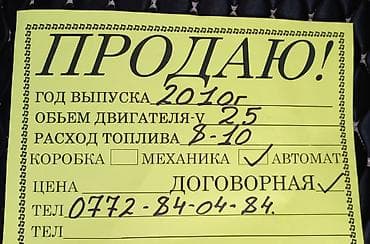 ПРОДАЮ!
ГОД ВЫПУСКА 2010г
ОБЬЕМ ДВИГАТЕЛЯ-V 2,5
РАСХОД ТОПЛИВА 8-10
КОРОБКА МЕХАНИКА ✓ АВТОМАТ
ЦЕНА ДОГОВОРНАЯ ✓
ТЕЛ 0772-84-04-84.
ТЕЛ